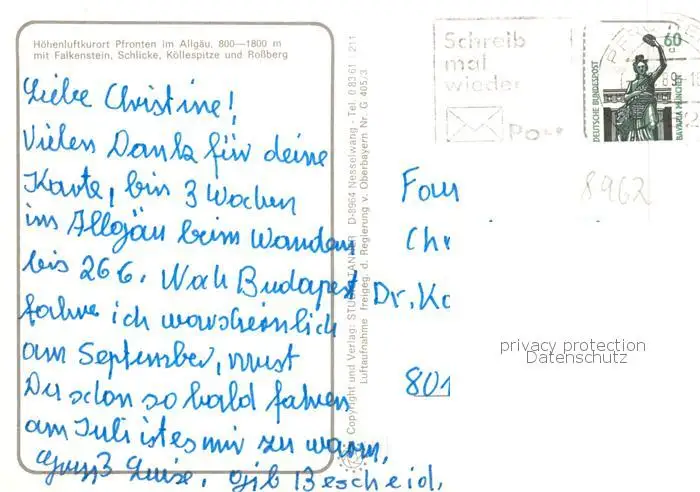 Höhenluftkurort Pfronten im Allgäu, 800—1800 m
mit Falkenstein, Schlicke, Köllespitze und Roßberg
Liebe Christine!
Vielen Dank für deine
Karte, bin 3 Wochen
im Allgäu beim Wandern
bis 26 6. Nach Budapest
fahre ich warscheinlich
am September, must
Du schon so bald fahren
am Juli ist es mir zu warm,
Gruß Luise, gib Bescheid,
Copyright und Verlag: STUDIO TANNER D-8964 Nesselwang - Tel. 0 83 61 / 211
Luftaufnahme Freigeg. d. Regierung v. Oberbayern Nr. G 40523
Schreib
mal
wieder
Post
60
DEUTSCHE BUNDESPOST
BAVARIA MÜNCHEN
8962
Fam
Chr
Dr. Ko
801
privacy protection
Datenschutz